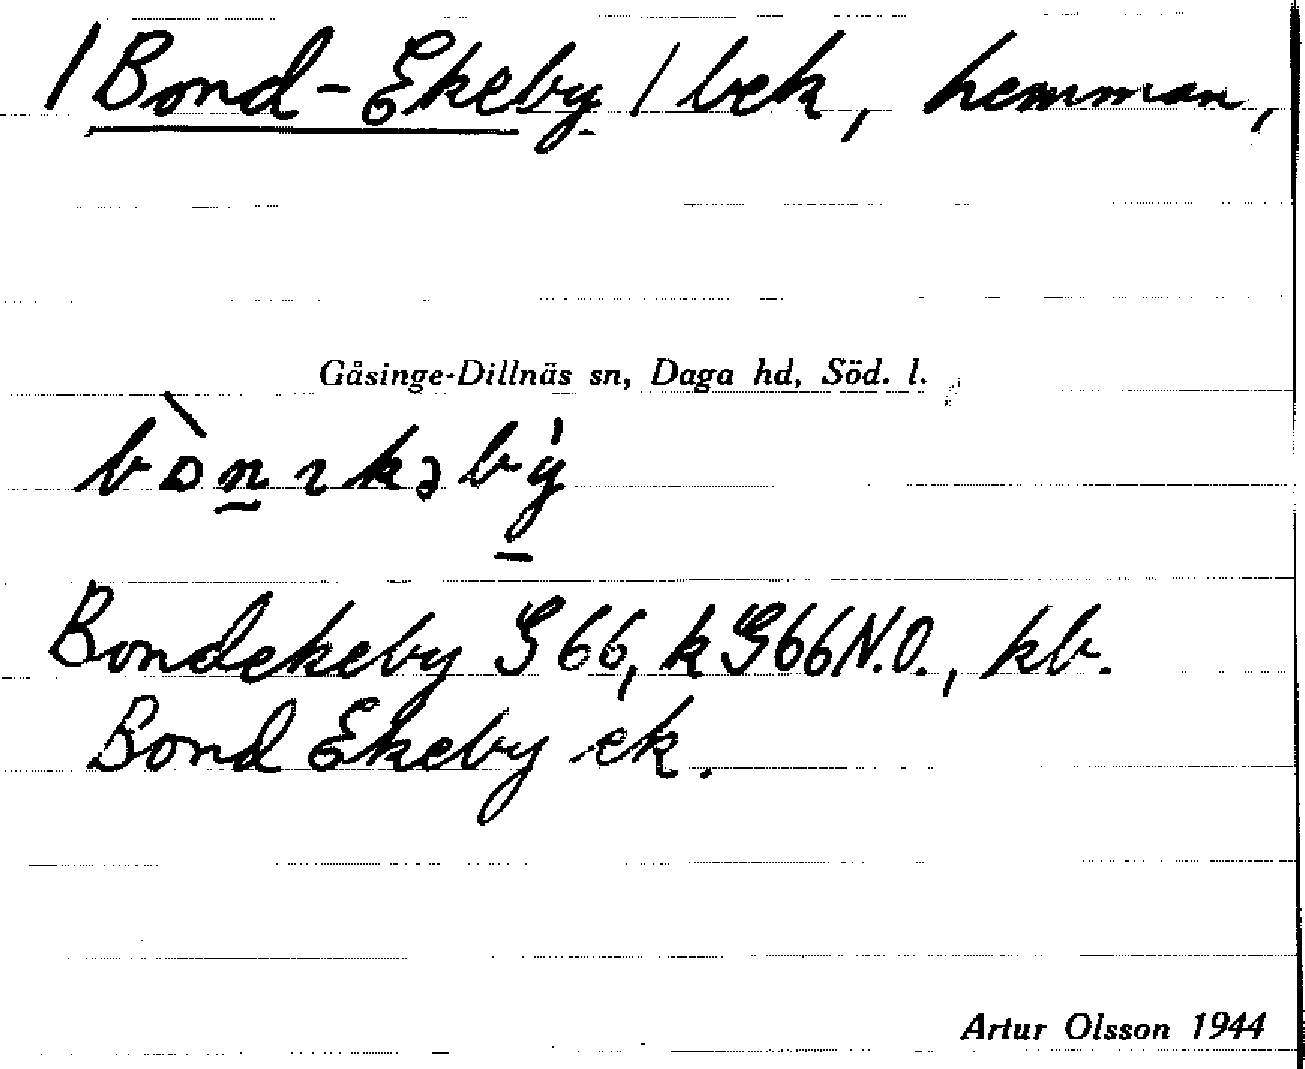 /Bond-Ekeby/ bek, hemman,
Gåsinge-Dillnäs sn, Daga hd, Söd. l.
Bondekeby G66, kG66N.O., kb.
Bond Ekeby ek.
Artur Olsson 1944